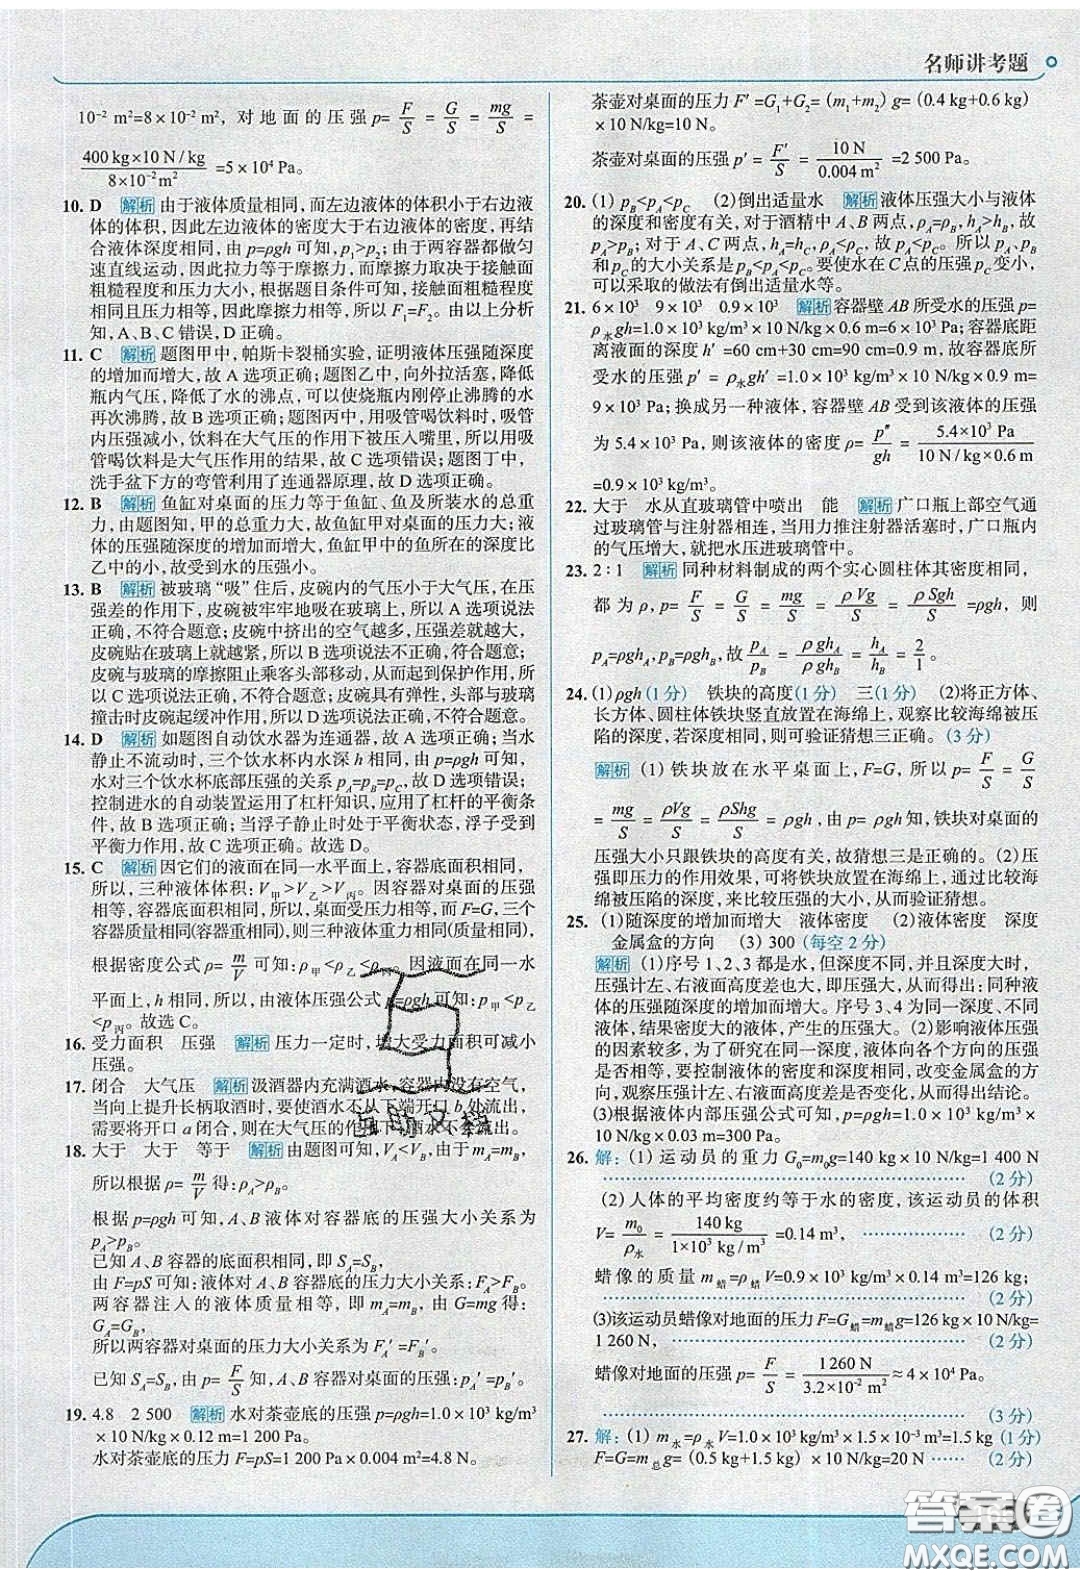 名师讲考题
10⁻² m²=8×10⁻² m², 对地面的压强p= F/S = G/S = mg/S =
400 kg×10 N/kg / 8×10⁻² m² =5×10⁴ Pa。
10. D 解析 由于液体质量相同,而左边液体的体积小于右边液
体的体积,因此左边液体的密度大于右边液体的密度,再结
合液体深度相同,由 p=ρgh 可知,p₁>p₂;由于两容器都做匀
速直线运动,因此拉力等于摩擦力,而摩擦力取决于接触面
粗糙程度和压力大小,根据题目条件可知,接触面粗糙程度
相同且压力相等,因此摩擦力相等,所以 F₁=F₂。由以上分析
知,A、B、C 错误,D 正确。
11. C 解析 题图甲中,帕斯卡裂桶实验,证明液体压强随深度
的增加而增大,故 A 选项正确;题图乙中,向外拉活塞,降低
瓶内气压,降低了水的沸点,可以使烧瓶内刚停止沸腾的水
再次沸腾,故 B 选项正确;题图丙中,用吸管喝饮料时,吸管
内压强减小,饮料在大气压的作用下被压入嘴里,所以用吸
管喝饮料是大气压作用的结果,故 C 选项错误;题图丁中,
洗手盆下方的弯管利用了连通器原理,故 D 选项正确。
12. B 解析 鱼缸对桌面的压力等于鱼缸、鱼及所装水的总重
力,由题图知,甲的总重力大,故鱼缸甲对桌面的压力大;液
体的压强随深度的增加而增大,鱼缸甲中的鱼所在的深度比
乙中的小,故受到水的压强小。
13. B 解析 被玻璃“吸”住后,皮碗内的气压小于大气压,在压
强差的作用下,皮碗被牢牢地吸在玻璃上,所以 A 选项说法
正确,不符合题意;皮碗中挤出的空气越多,压强差就越大,
皮碗贴在玻璃上就越紧,所以 B 选项说法不正确,符合题意;
皮碗与玻璃的摩擦阻止乘客头部移动,从而起到保护作用,所
以 C 选项说法正确,不符合题意;皮碗具有弹性,头部与玻璃
撞击时皮碗起缓冲作用,所以 D 选项说法正确,不符合题意。
14. D 解析 如题图自动饮水器为连通器,故 A 选项正确;当水
静止不流动时,三个饮水杯内水深 h 相同,由 p=ρgh 可知:
水对三个饮水杯底部压强的关系 p_A=p_B=p_C,故 D 选项错误;
控制进水的自动装置运用了杠杆知识,应用了杠杆的平衡条
件,故 B 选项正确;当浮子静止时处于平衡状态,浮子受到
平衡力作用,故 C 选项正确。故选 D。
15. C 解析 因它们的液面在同一水平面上,容器底面积相同,
所以,三种液体体积:V甲>V乙>V丙。因容器对桌面的压强
相等,容器底面积相同,所以,桌面受压力相等,而 F=G,三个
容器质量相同(容器重相同),则三种液体重力相同(质量相同),
根据密度公式 ρ= m/V 可知:ρ甲<ρ乙<ρ丙。因液面在同一水
平面上,h 相同,所以,由液体压强公式 p=ρgh 可知:p甲<p乙
<p丙。故选 C。
16. 受力面积 压强 解析 压力一定时,增大受力面积可减小
压强。
17. 闭合 大气压 解析 汲酒器内充满酒水,容器内没有空气,
当向上提升长柄取酒时,要使酒水不从下端开口 b 处流出,
需要将开口 a 闭合,在大气压的作用下,酒水不会流出。
18. 大于 大于 等于 解析 由题图可知,V_A<V_B,由于 m_A=m_B,
所以根据 ρ= m/V 得:ρ_A>ρ_B。
根据 p=ρgh 可知,A、B 液体对容器底的压强大小关系为
p_A>p_B。
已知 A、B 容器的底面积相同,即 S_A=S_B,
由 F=pS 可知:液体对 A、B 容器底的压力大小关系:F_A>F_B。
两容器注入的液体质量相等,即 m_A=m_B,由 G=mg 得:
G_A=G_B,
所以两容器对桌面的压力大小关系为 F_A′=F_B′。
已知 S_A=S_B,由 p= F/S 可知:容器对桌面的压强:p_A′=p_B′。
19. 4.8 2 500 解析 水对茶壶底的压强 p=ρgh=1.0×10³ kg/m³
×10 N/kg×0.12 m=1 200 Pa。
水对茶壶底的压力 F=pS=1 200 Pa×0.004 m²=4.8 N。
茶壶对桌面的压力 F′=G₁+G₂=(m₁+m₂)g=(0.4 kg+0.6 kg)
×10 N/kg=10 N。
茶壶对桌面的压强 p′= F′/S = 10 N / 0.004 m² =2 500 Pa。
20. (1) p_B<p_A<p_C (2)倒出适量水 解析 液体压强大小与液体
的深度和密度有关,对于酒精中 A、B 两点,ρ_A=ρ_B,h_A>h_B,故
p_A>p_B;对于 A、C 两点,h_A=h_C,ρ_A<ρ_C,故 p_A<p_C。所以 p_A、p_B
和 p_C 的大小关系是 p_B<p_A<p_C。要使水在 C 点的压强变小,
可以采取的做法有倒出适量水等。
21. 6×10³ 9×10³ 0.9×10³ 解析 容器壁 AB 所受水的压强 p=
ρ水gh=1.0×10³ kg/m³×10 N/kg×0.6 m=6×10³ Pa;容器底距
离液面的深度 h′=60 cm+30 cm=90 cm=0.9 m,故容器底所
受水的压强 p′=ρ水gh′=1.0×10³ kg/m³×10 N/kg×0.9 m=
9×10³ Pa;换成另一种液体,容器壁 AB 受到该液体的压强
为 5.4×10³ Pa,则该液体的密度 ρ= p″/gh = 5.4×10³ Pa / 10 N/kg×0.6 m
=0.9×10³ kg/m³。
22. 大于 水从直玻璃管中喷出 能 解析 广口瓶上部空气通
过玻璃管与注射器相连,当用力推注射器活塞时,广口瓶内
的气压增大,就把水压进玻璃管中。
23. 2∶1 解析 同种材料制成的两个实心圆柱体其密度相同,
都为 ρ,p= F/S = G/S = mg/S = ρVg/S = ρSgh/S =ρgh,则
p_A=ρgh_A,p_B=ρgh_B,故 p_A/p_B = ρgh_A/ρgh_B = h_A/h_B = 2/1。
24. (1)ρgh(1 分) 铁块的高度(1 分) 三(1 分) (2)将正方体、
长方体、圆柱体铁块竖直放置在海绵上,观察比较海绵被压
陷的深度,若深度相同,则可验证猜想三正确。(3 分)
解析 (1)铁块放在水平桌面上,F=G,所以 p= F/S = G/S
= mg/S = ρVg/S = ρShg/S =ρgh,由 p=ρgh 知,铁块对桌面的
压强大小只跟铁块的高度有关,故猜想三是正确的。(2)压
强即压力的作用效果,可将铁块放置在海绵上,通过比较海
绵被压陷的深度,来比较压强的大小,从而验证猜想。
25. (1)随深度的增加而增大 液体密度 (2)液体密度 深度
金属盒的方向 (3) 300 (每空 2 分)
解析 (1)序号 1、2、3 都是水,但深度不同,并且深度大时,
压强计左、右液面高度差也大,即压强大,从而得出:同种液
体的压强随深度的增加而增大。序号 3、4 为同一深度、不同
液体,结果密度大的液体,产生的压强大。(2)影响液体压强
的因素较多,为了研究在同一深度,液体向各个方向的压强
是否相等,要控制液体的密度和深度相同,改变金属盒的方
向,观察压强计左、右液面高度差是否变化,从而得出结论。
(3)根据液体内部压强公式可知,p=ρgh=1.0×10³ kg/m³×
10 N/kg×0.03 m=300 Pa。
26. 解:(1)运动员的重力 G₀=m₀g=140 kg×10 N/kg=1 400 N
(2 分)
(2)人体的平均密度约等于水的密度,该运动员的体积
V= m₀/ρ水 = 140 kg / 1×10³ kg/m³ =0.14 m³, (2 分)
蜡像的质量 m蜡=ρ蜡V=0.9×10³ kg/m³×0.14 m³=126 kg;
(2 分)
(3)该运动员蜡像对地面的压力 F=G蜡=m蜡g=126 kg×10 N/kg=
1 260 N, (2 分)
蜡像对地面的压强 p= F/S = 1 260 N / 3.2×10⁻² m² ≈4×10⁴ Pa。
(3 分)
27. 解:(1) m水=ρ水V=1.0×10³ kg/m³×1.5×10⁻³ m³=1.5 kg (1 分)
F=G=m总g=(0.5 kg+1.5 kg)×10 N/kg=20 N (2 分)
答案圈
MXQE.COM